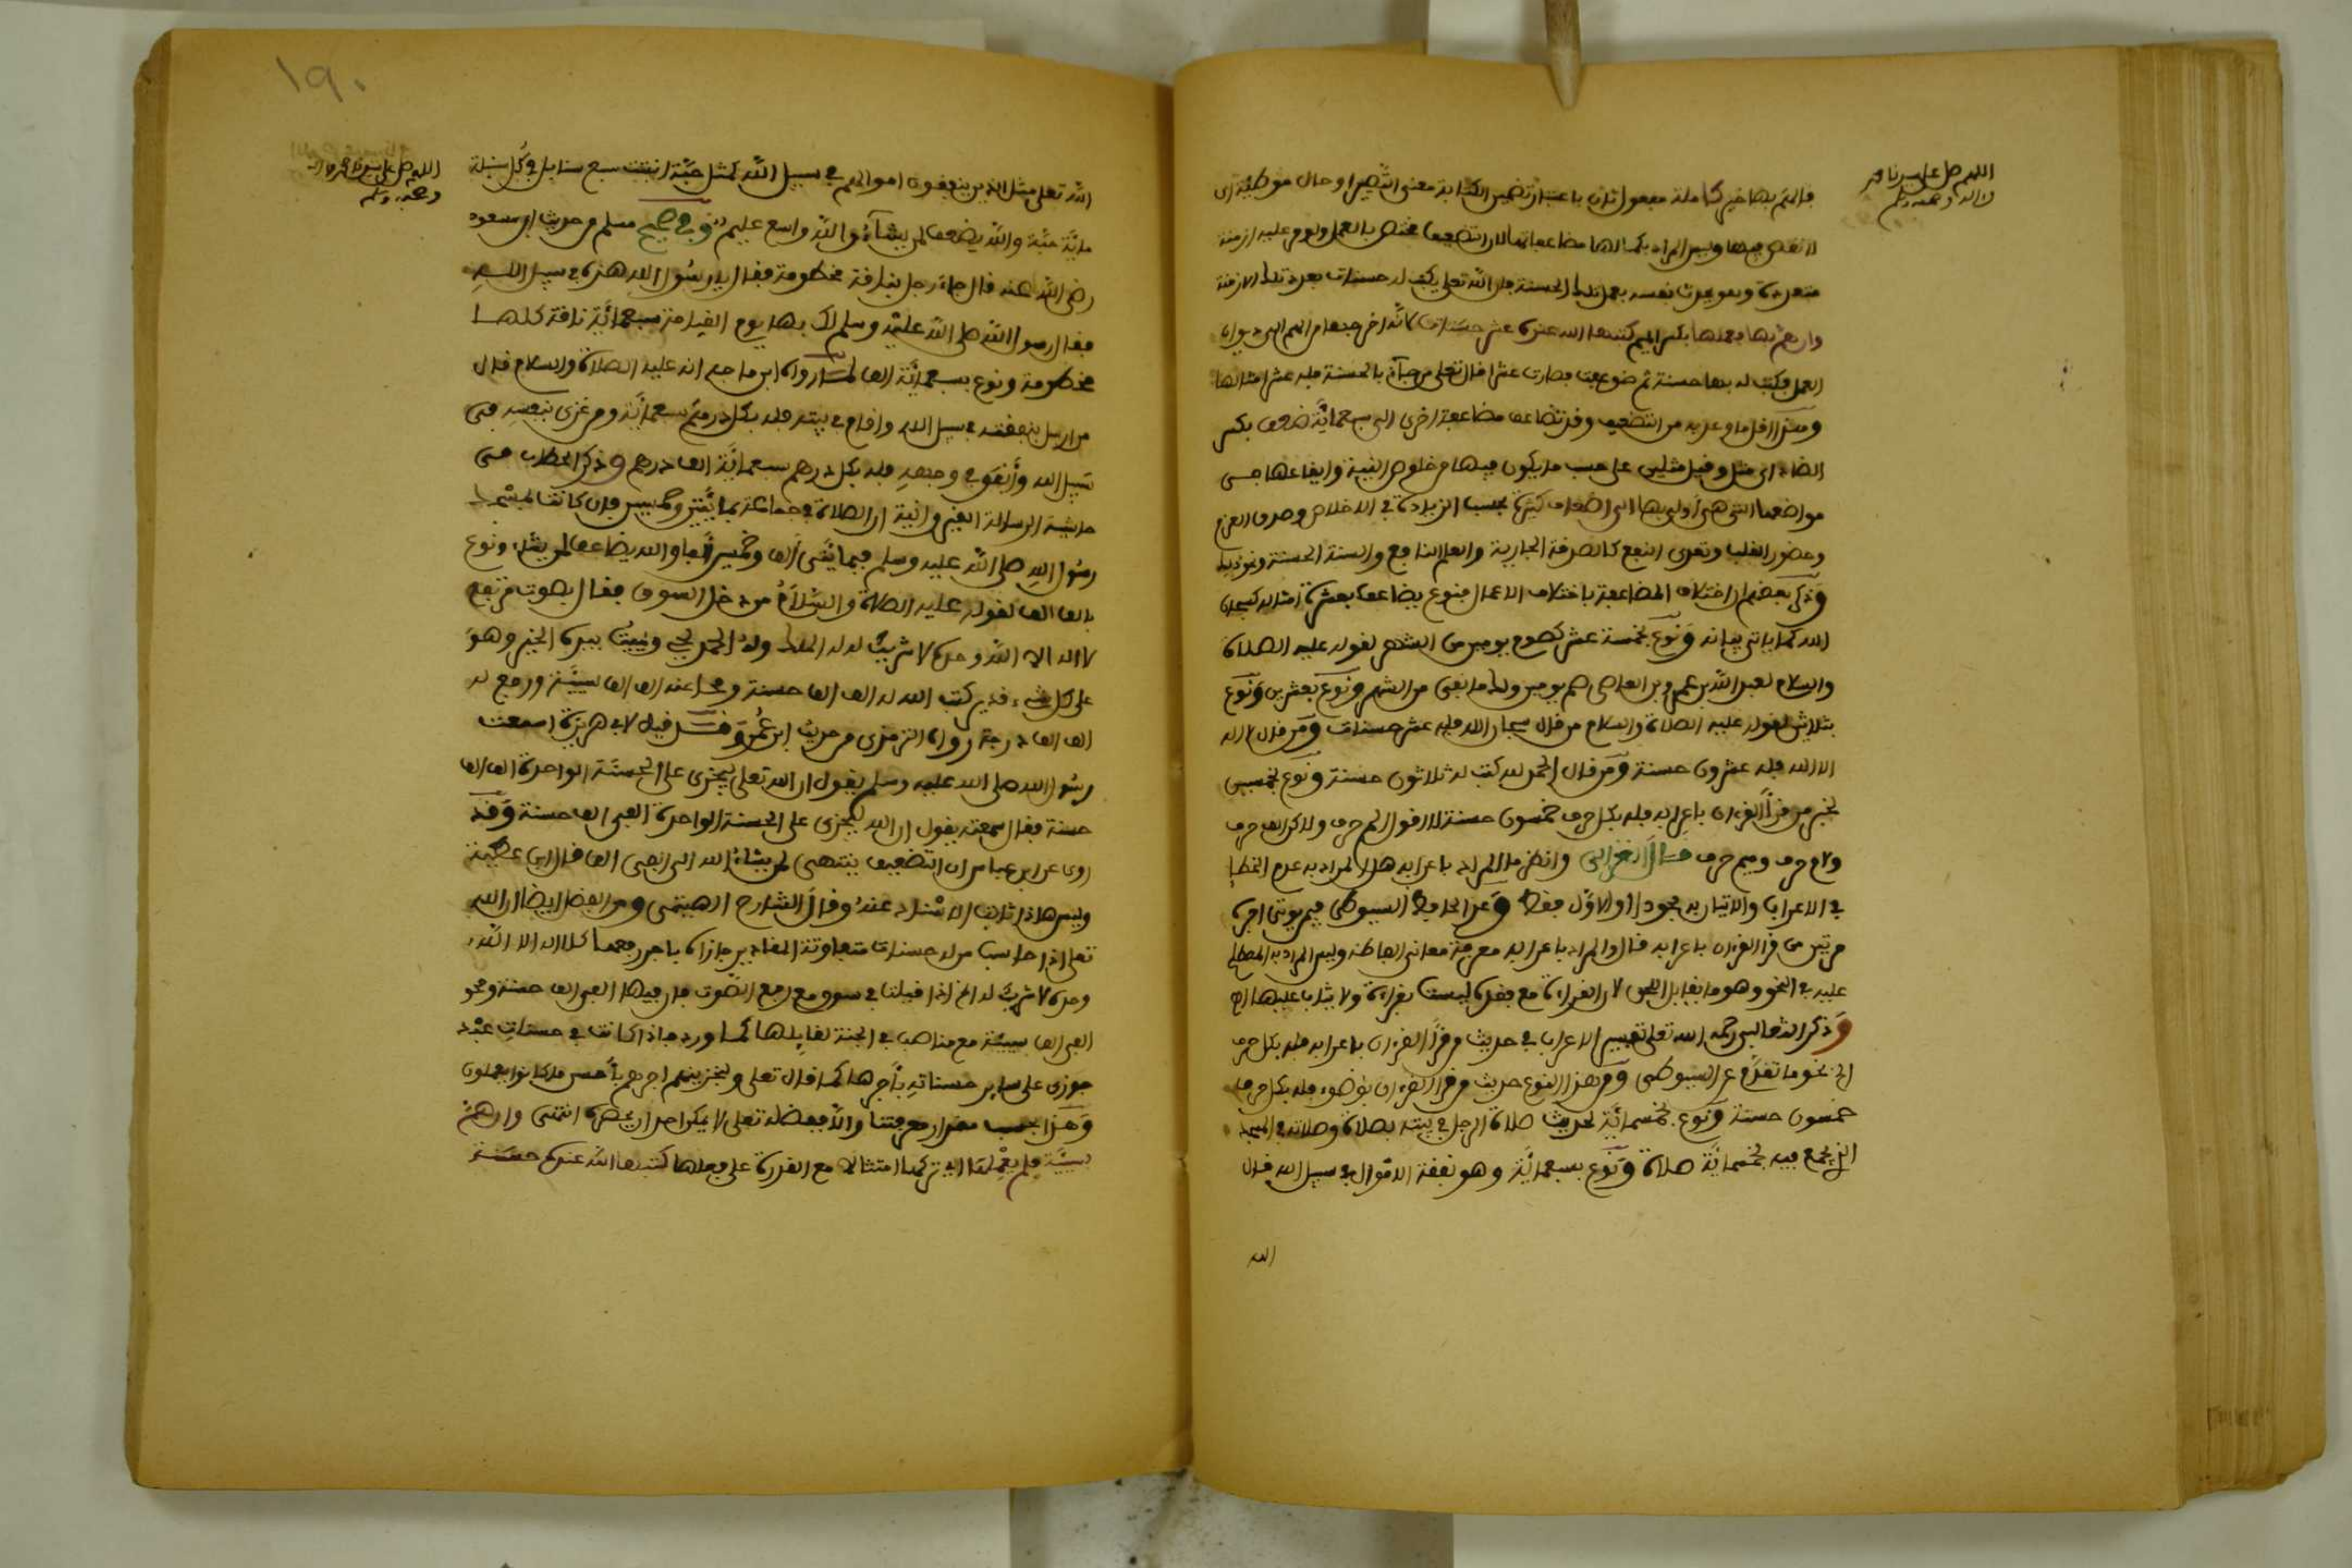 اللهم صل على سيدنا محمد
وءاله وصحبه وسلم
فالهم بها خير كاملة مفعول ثان باعتبار تضمين الكتابة معنى التصيير او حال موطئة اى
لا نقص فيها وليس المراد بكمالها مضاعفاتها لان التضعيف مختص بالعمل ولو هم عليه ازمنة
متعددة وهو يحدث نفسه بعمل تلك الحسنة فان الله تعلى يكتب له حسنات بعدد تلك الازمنة
وان هم بها فعملها بكسر الميم كتبها الله عنده عشر حسنات لانه اخرجها من الهم الى ديوان
العمل فكتب له بها حسنة ثم ضوعفت فصارت عشرا قال تعلى من جآء بالحسنة فله عشر امثالها
وهذا اقل ما وعد به من التضعيف وقد تضاعف مضاعفة اخرى الى سبعمائة ضعف بكسر
الضاد اى مثل وقيل مثلين على حسب ما يكون فيها من خلوص النية وايقاعها فى
مواضعها التى هى أولى بها الى أضعاف كثيرة بحسب الزيادة فى الاخلاص وصدق العزم
وحضور القلب وتعدى النفع كالصدقة الجارية والعلم النافع والسنة الحسنة ونحو ذلك
وذكر بعضهم ان اختلاف المضاعفة باختلاف الاعمال فنوع يضاعف بعشرة امثاله كسبحان
الله كما ياتى بيانه ونوع بخمسة عشر كصوم يومين من الشهر لقوله عليه الصلاة
والسلام لعبد الله بن عمرو بن العاصى صم يومين ولك ما بقى من الشهر ونوع بعشرين ونوع
بثلاثين لقوله عليه الصلاة والسلام من قال سبحان الله فله عشر حسنات ومن قال لا اله
الا الله فله عشرون حسنة ومن قال الحمد لله كتب له ثلاثون حسنة ونوع بخمسين
لخبر من قرأ القرءان باعرابه فله بكل حرف خمسون حسنة لا اقول الم حرف ولكن الف حرف
ولام حرف وميم حرف قال الغزالى وانظر ما المراد باعرابه هل المراد به عدم الخطإ
فى الاعراب والاتيان به مجودا او الاول فقط وعن الحافظ السيوطى فيم يوتى اجره
مرتين من قرا القرءان باعرابه قال والمراد باعرابه معرفة معانى الفاظه وليس المراد به المصطلح
عليه فى النحو وهو ما يقابل اللحن لان القراءة مع فقده ليست بقراءة ولا يثاب عليها اهـ
وذكر الثعالبى رحمه الله تعلى تفسير الاعراب فى حديث من قرأ القرءان باعرابه فله بكل حرف
الخ نحو ما تقدم عن السيوطى ومن هذا النوع حديث من قرأ القرءان بوضوء فله بكل حرف
خمسون حسنة ونوع بخمسمائة لحديث صلاة الرجل فى بيته بصلاة وصلاته فى المسجد
الذى يجمع فيه بخمسمائة صلاة ونوع بسبعمائة وهو نفقة الاموال فى سبيل الله قال
الله
١٩٠
اللهم صل على سيدنا محمد وءاله
وصحبه وسلم
الله تعلى مثل الذين ينفقون اموالهم فى سبيل الله كمثل حبة انبتت سبع سنابل فى كل سنبلة
مائة حبة والله يضعف لمن يشآء والله واسع عليم وفى صحيح مسلم من حديث ابى مسعود
رضى الله عنه قال جاء رجل بناقة مخطومة فقال يا رسول الله هذه فى سبيل الله
فقال رسول الله صلى الله عليه وسلم لك بها يوم القيامة سبعمائة ناقة كلها
مخطومة ونوع بسبعمائة الف لما رواه ابن ماجه انه عليه الصلاة والسلام قال
من ارسل بنفقة فى سبيل الله واقام فى بيته فله بكل درهم سبعمائة ومن غزى بنفسه فى
سبيل الله وأنفق فى وجهه فله بكل درهم سبعمائة الف درهم وذكر الحطاب فى
حاشية الرسالة ان الصلاة فى جماعة بمائتين وخمسين فان كانت بمسجد
رسول الله صلى الله عليه وسلم فبمائتى ألف وخمسين ألفا والله يضاعف لمن يشاء ونوع
بالف الف لقوله عليه الصلاة والسلام من دخل السوق فقال بصوت مرتفع
لا اله الا الله وحده لا شريك له له الملك وله الحمد يحيى ويميت بيده الخير وهو
على كل شىء قدير كتب الله له الف الف حسنة ومحا عنه الف الف سيئة ورفع له
الف الف درجة رواه الترمذى من حديث ابن عمر وقد قيل لابى هريرة اسمعت
رسول الله صلى الله عليه وسلم يقول ان الله تعلى ليجزى على الحسنة الواحدة الف الف
حسنة فقال سمعته يقول ان الله ليجزى على الحسنة الواحدة الفى الف حسنة وقد
روى عن ابن عباس ان التضعيف ينتهى لمن يشاء الله الى الفى الف قال ابن عطية
وليس هاذا ثابت الاسناد عنه وقال الشارح الهيتمى ومن الفضل ايضا ان الله
تعلى اذا حاسب من له حسنات متفاوتة المقادير جازاه باجر رفعها كلا اله الا الله
وحده لا شريك له الخ اذا قيلت فى سوق مع رفع الصوت فان فيها الفى الف حسنة ومحو
الفى الف سيئة مع ما ضعف فى الجنة لقايلها كما ورد فاذا كانت فى حسنات عبد
جوزى على سائر حسناته بأجرها كما قال تعلى ولنجزينهم اجرهم بأحسن ما كانوا يعملون
وهذا بحسب مقدار معرفتنا والا ففضله تعلى لا يمكن احدا ان يحصره انتهى وان هم
بسيئة فلم يعملها اى تركها امتثالا مع القدرة على فعلها كتبها الله عنده حسنة